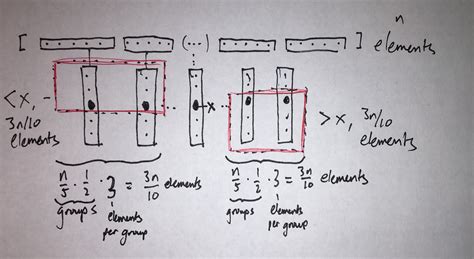 n
[ (...) ] elements
< x,
3n/10
elements
x
> x, 3n/10
elements
n/5 · 1/2 · 3 = 3n/10 elements
groups
elements
per group
n/5 · 1/2 · 3 = 3n/10 elements
groups
elements
per group